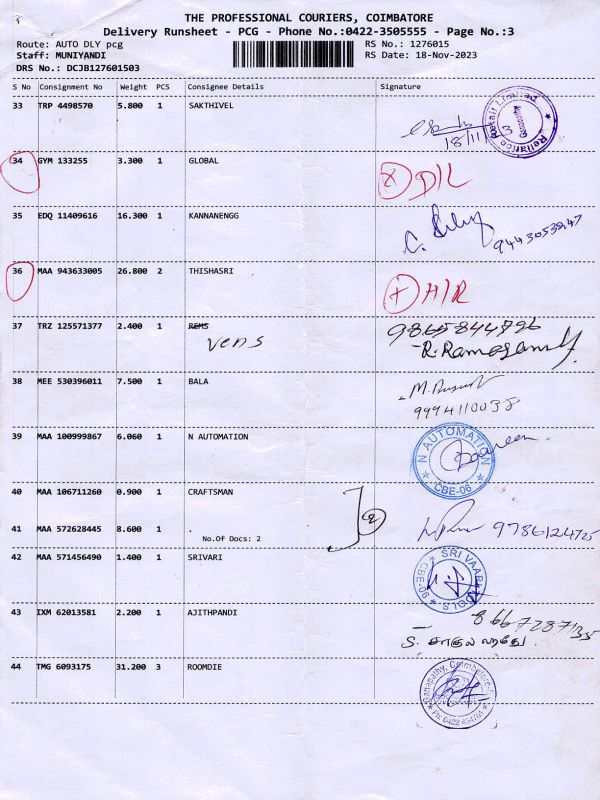 THE PROFESSIONAL COURIERS, COIMBATORE
Delivery Runsheet - PCG - Phone No.:0422-3505555 - Page No.:3
Route: AUTO DLY pcg RS No.: 1276015
Staff: MUNIYANDI RS Date: 18-Nov-2023
DRS No.: DCJB127601503
S No Consignment No Weight PCS Consignee Details Signature
33 TRP 4498570 5.800 1 SAKTHIVEL
18/11/
34 GYM 133255 3.300 1 GLOBAL X D/L
35 EDQ 11409616 16.300 1 KANNANENGG
36 MAA 943633005 26.800 2 THISHASRI
37 TRZ 125571377 2.400 1 REMS 9865844796
vens R. Ramasamy
38 MEE 530396011 7.500 1 BALA
9994110038
39 MAA 100999867 6.060 1 N AUTOMATION
N AUTOMATION
CBE-06
40 MAA 106711260 0.900 1 CRAFTSMAN
41 MAA 572628445 8.600 1 2 9786124725
No.Of Docs: 2
42 MAA 571456490 1.400 1 SRIVARI
43 IXM 62013581 2.200 1 AJITHPANDI
8667287135
44 TMG 6093175 31.200 3 ROOMDIE
Ganapathy, Coimbatore